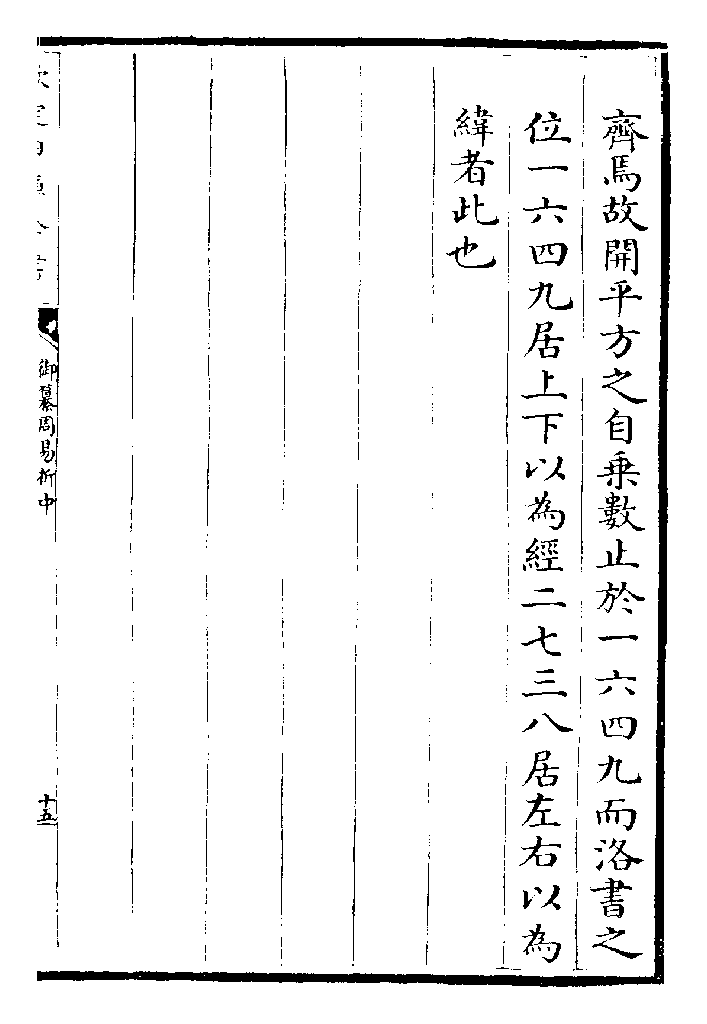 齊焉故開平方之自乗數止於一六四九而洛書之
位一六四九居上下以為經二七三八居左右以為
緯者此也
御纂周易折中
十五